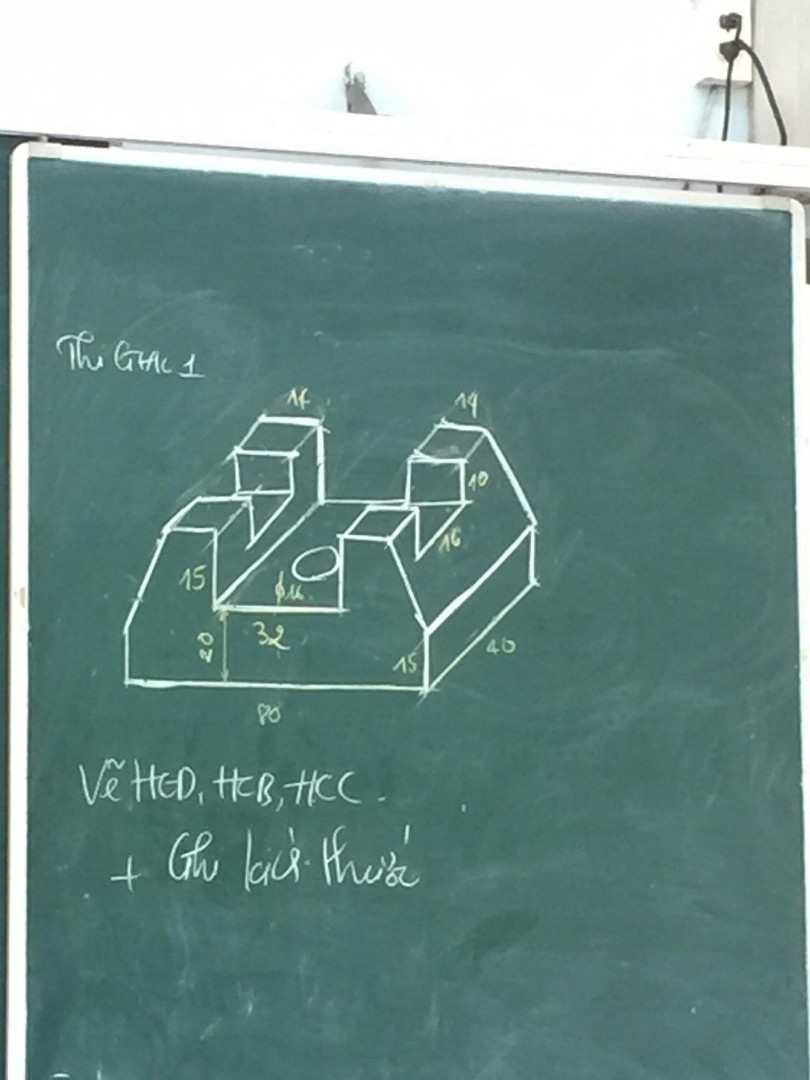 Thi GHK 1
14
14
10
16
15
ϕ16
20
32
15
40
80
Vẽ HCĐ, HCB, HCC.
+ Ghi kích thước